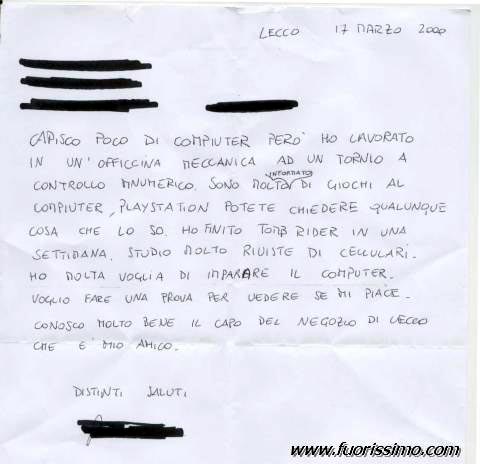 LECCO 17 MARZO 2000
CAPISCO POCO DI COMPIUTER PERO' HO LAVORATO
IN UN' OFFICCINA MECCANICA AD UN TORNIO A
CONTROLLO MNUMERICO. SONO MOLTO INFORMATO DI GIOCHI AL
COMPIUTER, PLAYSTATION POTETE CHIEDERE QUALUNQUE
COSA CHE LO SO. HO FINITO TOMB RIDER IN UNA
SETTIMANA. STUDIO MOLTO RIVISTE DI CELLULARI.
HO MOLTA VOGLIA DI IMPARARE IL COMPUTER.
VOGLIO FARE UNA PROVA PER VEDERE SE MI PIACE.
CONOSCO MOLTO BENE IL CAPO DEL NEGOZIO DI LECCO
CHE E' MIO AMICO.
DISTINTI SALUTI
www.fuorissimo.com